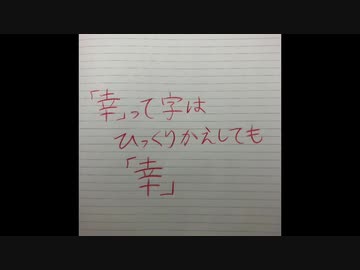 「幸」って字は
ひっくりかえしても
「幸」